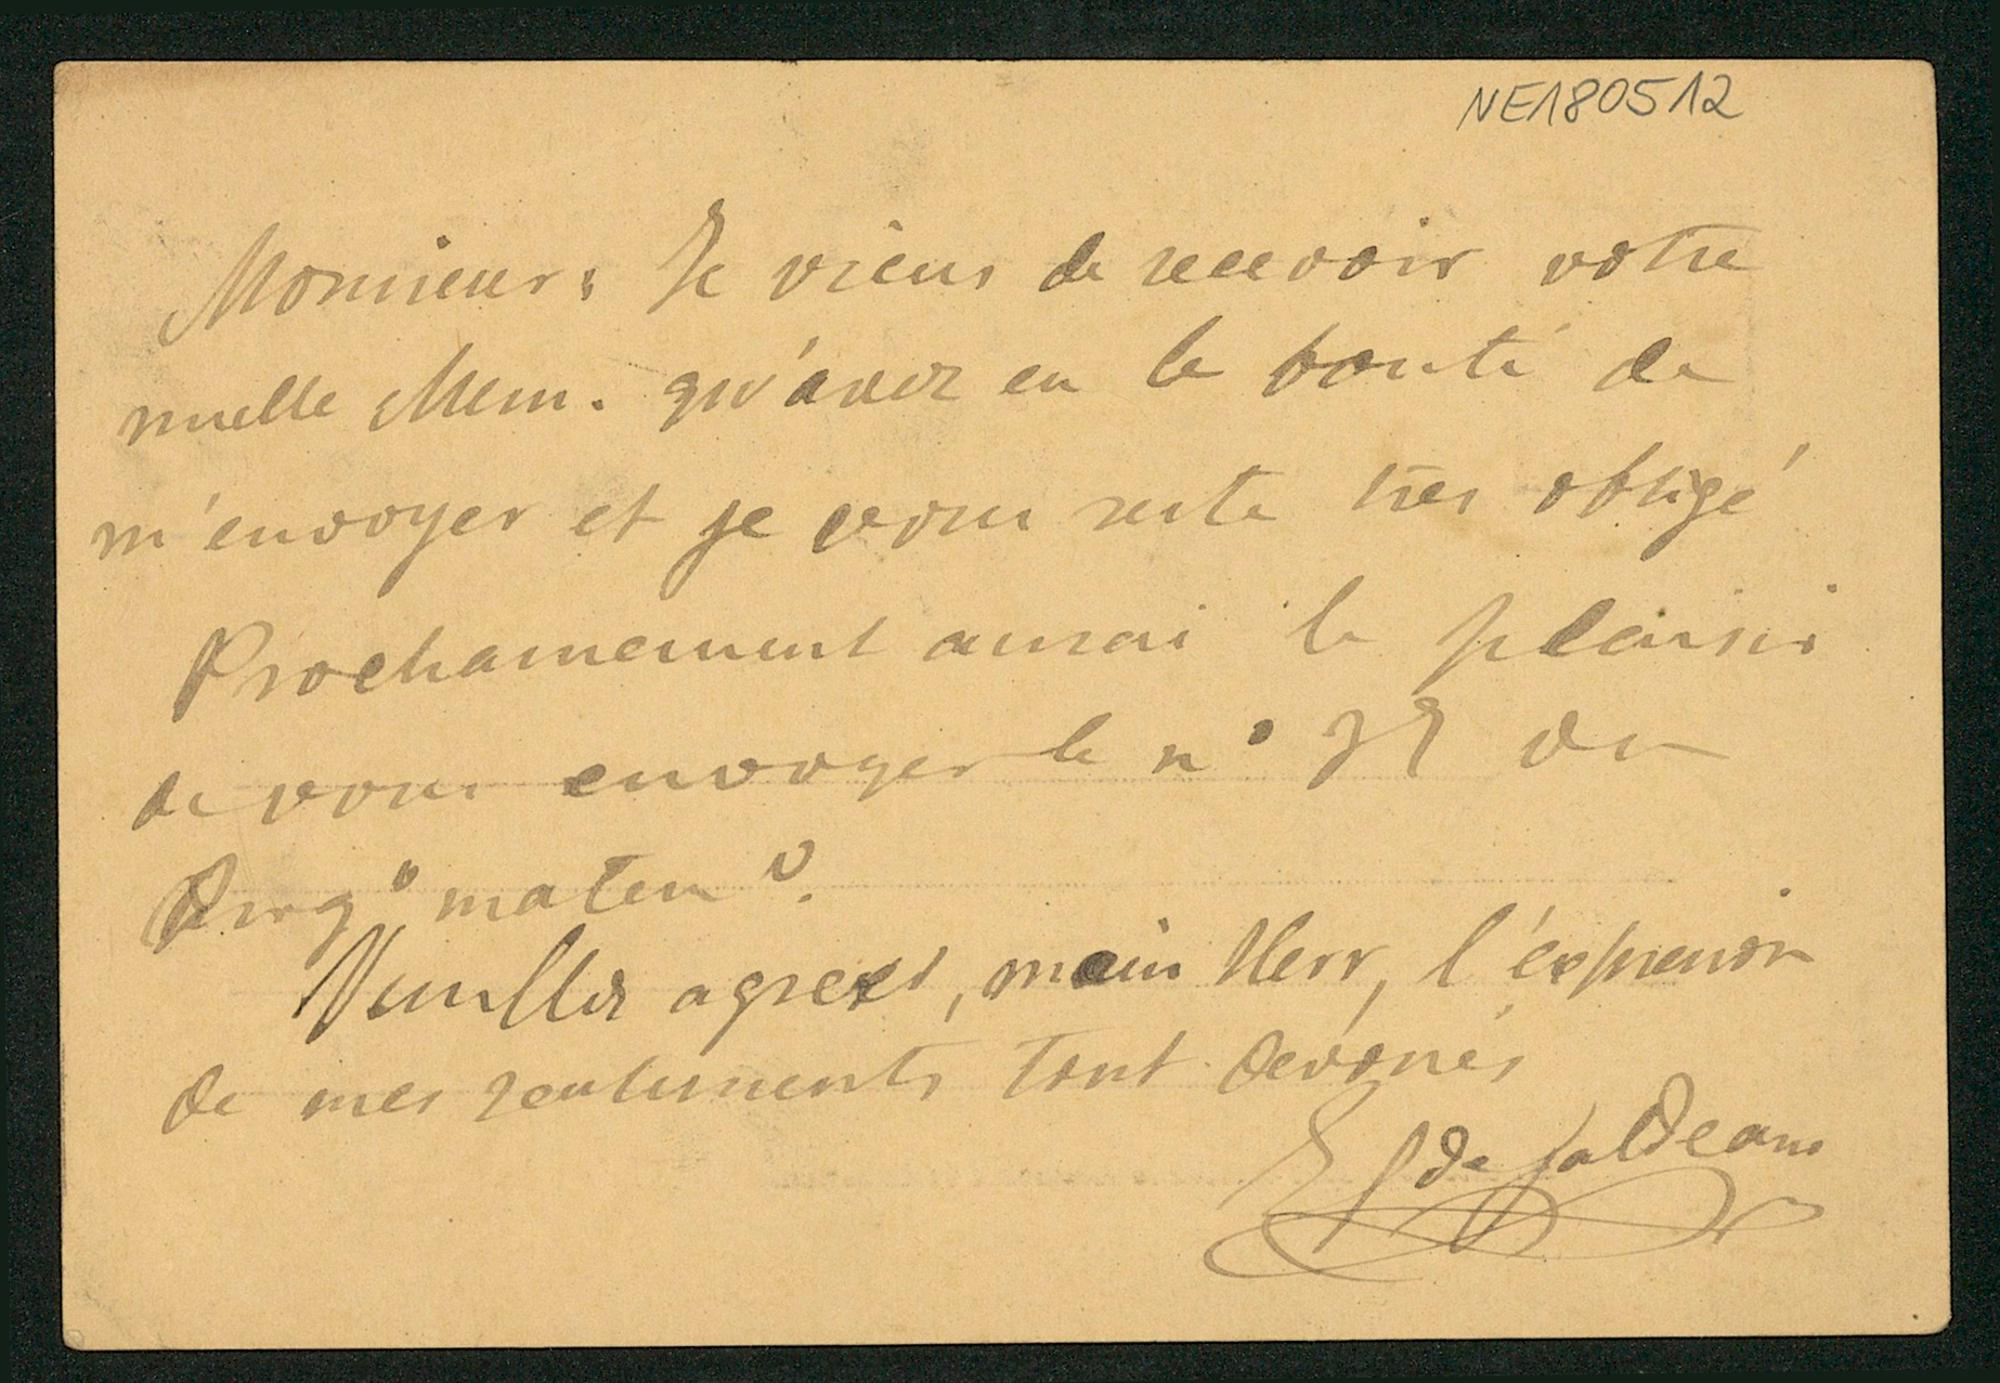 NE180512
Monsieur: Je viens de recevoir votre
nuelle Mem. qu'avez eu la bonté de
m'envoyer et je vous reste très obligé
Prochainement aurai le plaisir
de vous envoyer le n° 35 du
Prog " matem ".
Veuillez agreer, mein Herr, l'éxpression
de mes sentiments tout dévoués
de Galdeano